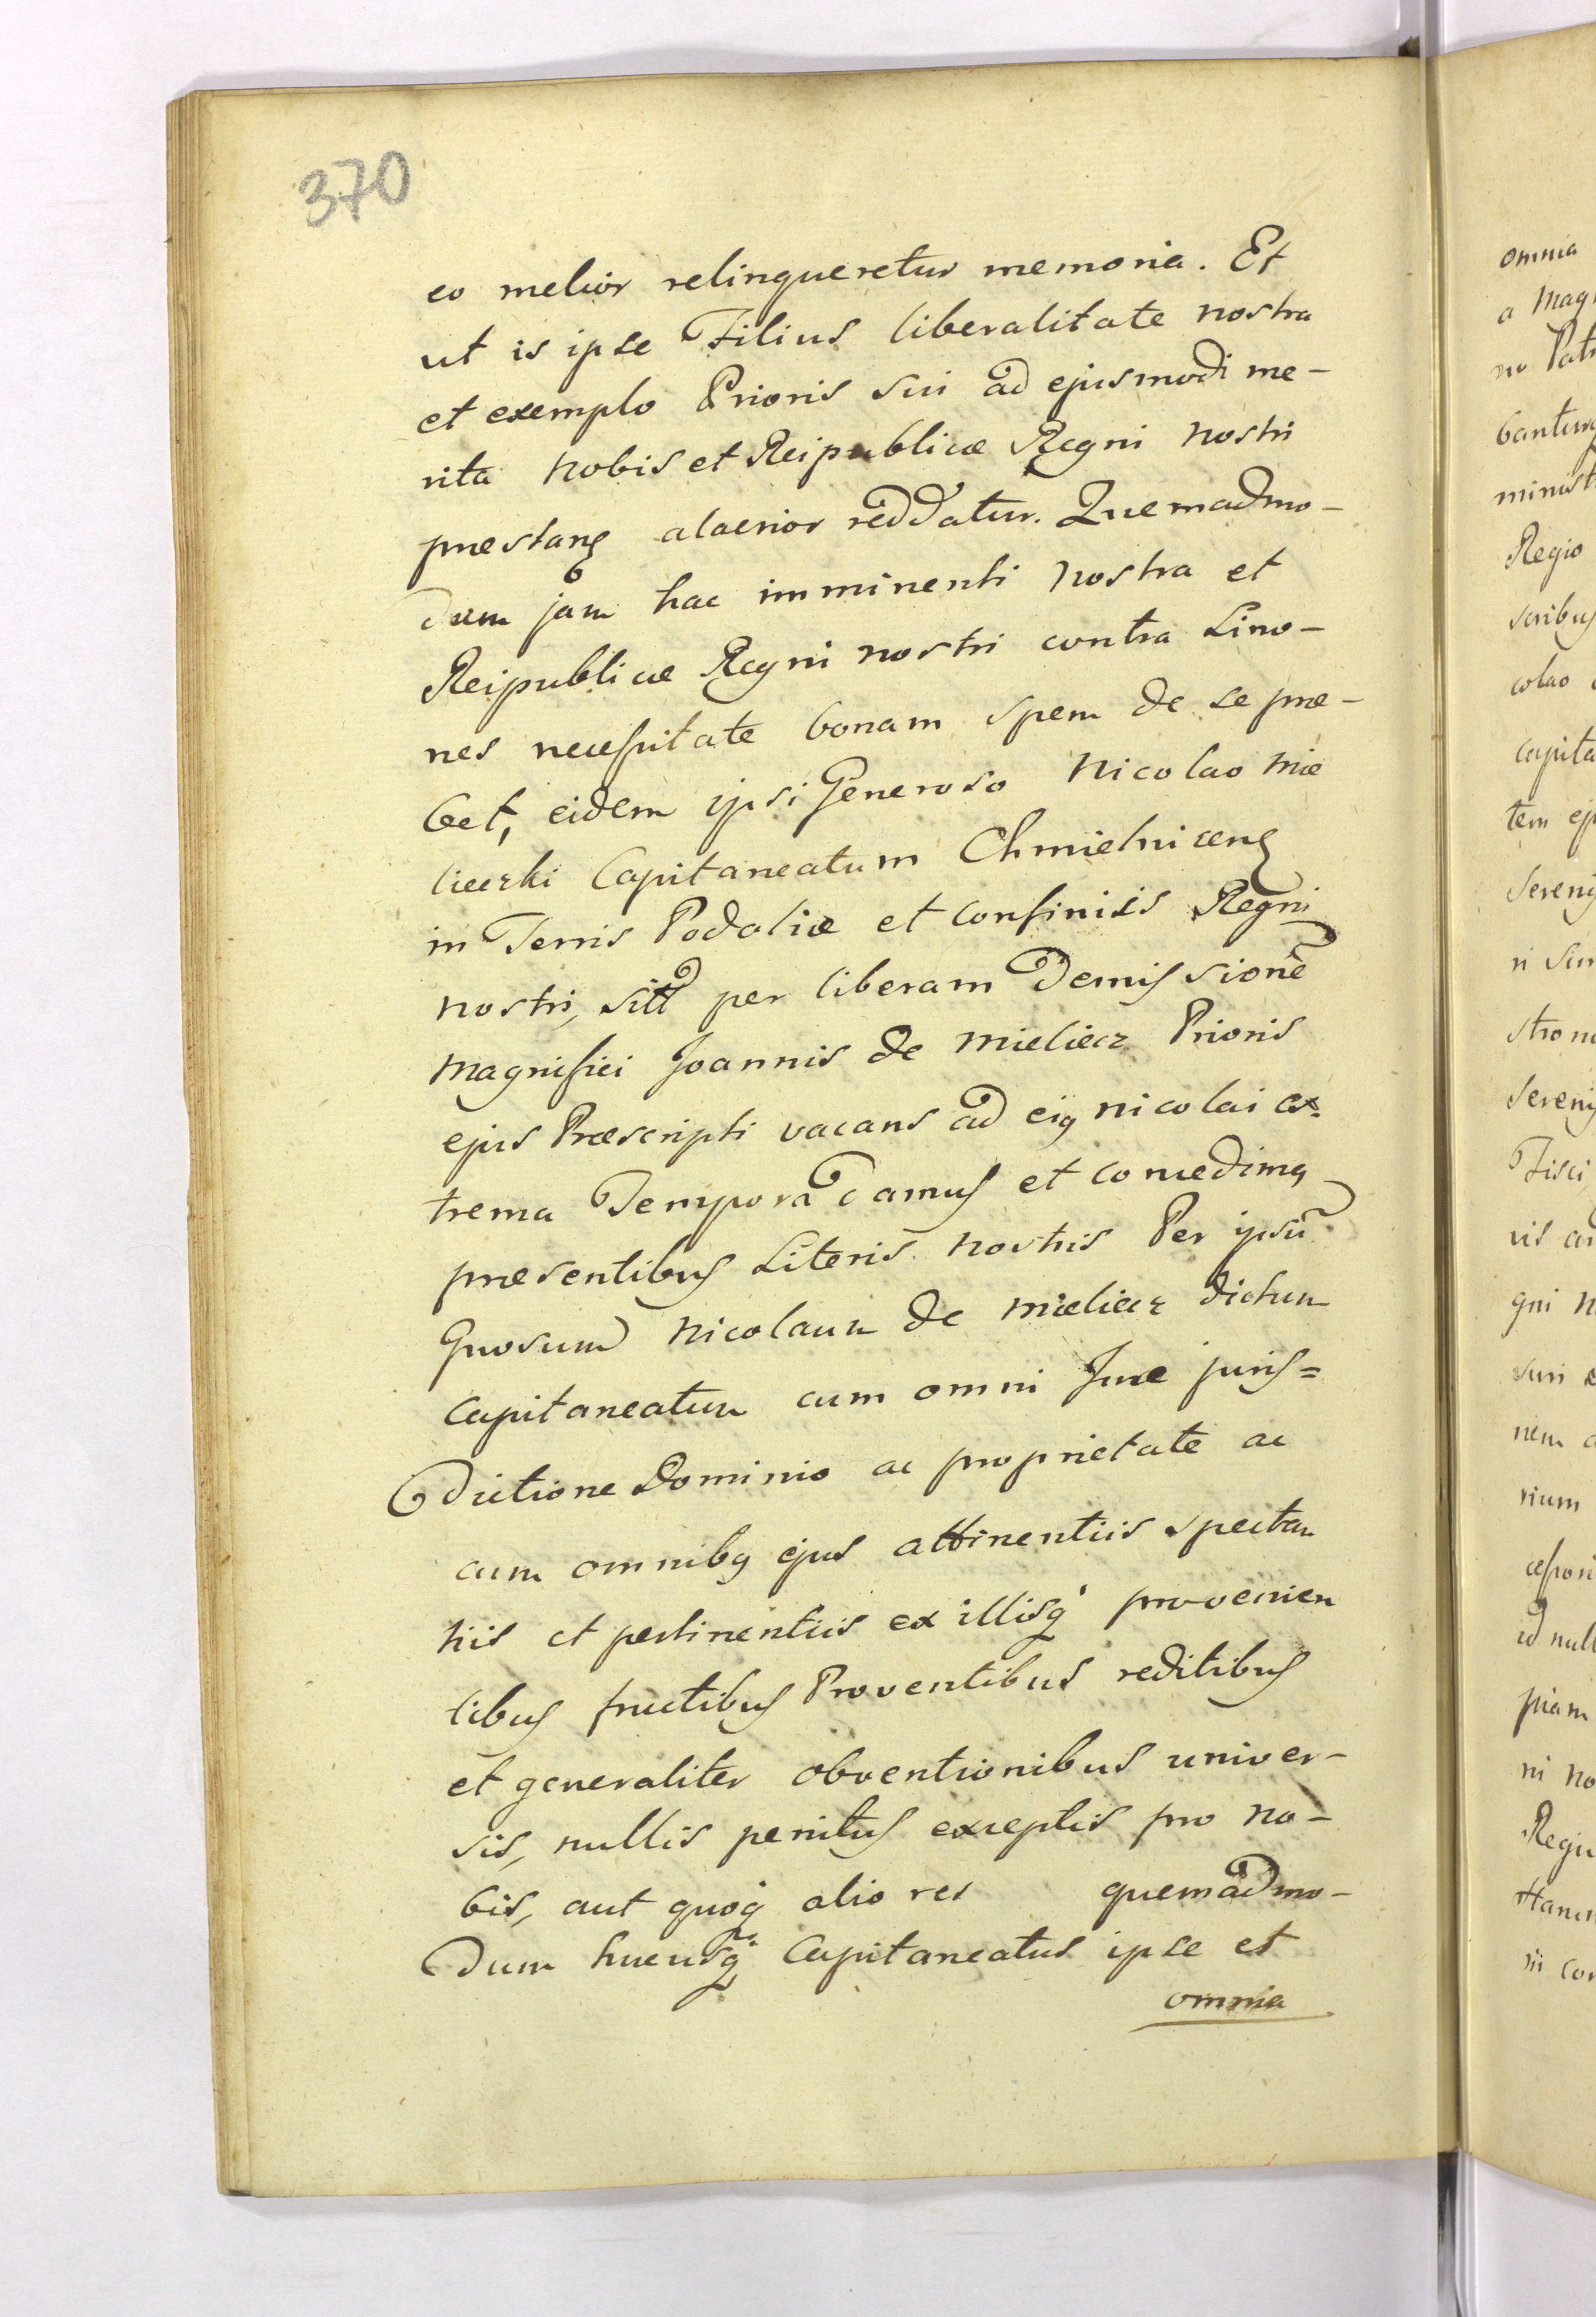 370
eo melior relinqueretur memoria. Et
ut is ipse Filius liberalitate nostra
et exemplo Prioris sui ad ejusmodi me-
rita nobis et Reipublicæ Regni nostri
præstanꝫ alacrior reddatur. Quemadmo-
dum jam hac imminenti nostra et
Reipublicæ Regni nostri contra Livo-
nes necessitate bonam spem de se præ-
bet, eidem ipsi Generoso Nicolao Mie
lieczki Capitaneatum Chmielnicenꝫ
in Terris Podoliæ et confiniis Regni
nostri, sittꝺ per liberam Demissionē
Magnifici Joannis de Mieliecz Prioris
ejus Præscripti vacans ad eiꝯ Nicolai ex-
trema Tempora damus et concedimꝯ
præsentibus Literis nostris Per ipsū
Gnosum Nicolaum de Mieliecz dictum
Capitaneatum cum omni Jure juris=
dictione Dominio ac proprietate ac
cum omnibꝯ ejus attinentiis spectan
tiis et pertinentiis ex illisq́ provenien
tibus fructibus Proventibus reditibus
et generaliter obventionibus univer-
sis, nullis penitus exceptis pro no-
bis, aut quoq́ alio res quemadmo-
dum hucusq́ Capitaneatus ipse et
omnia
omnia
a Mag
no Pat
bantur
minist
Regio
scribus
colao
capita
tem ej
Sereniss
ri sui
strono
Sereniss
Fisci
gni n
suri
nem a
rium
id null
piam
ni no
Regi
Hanc